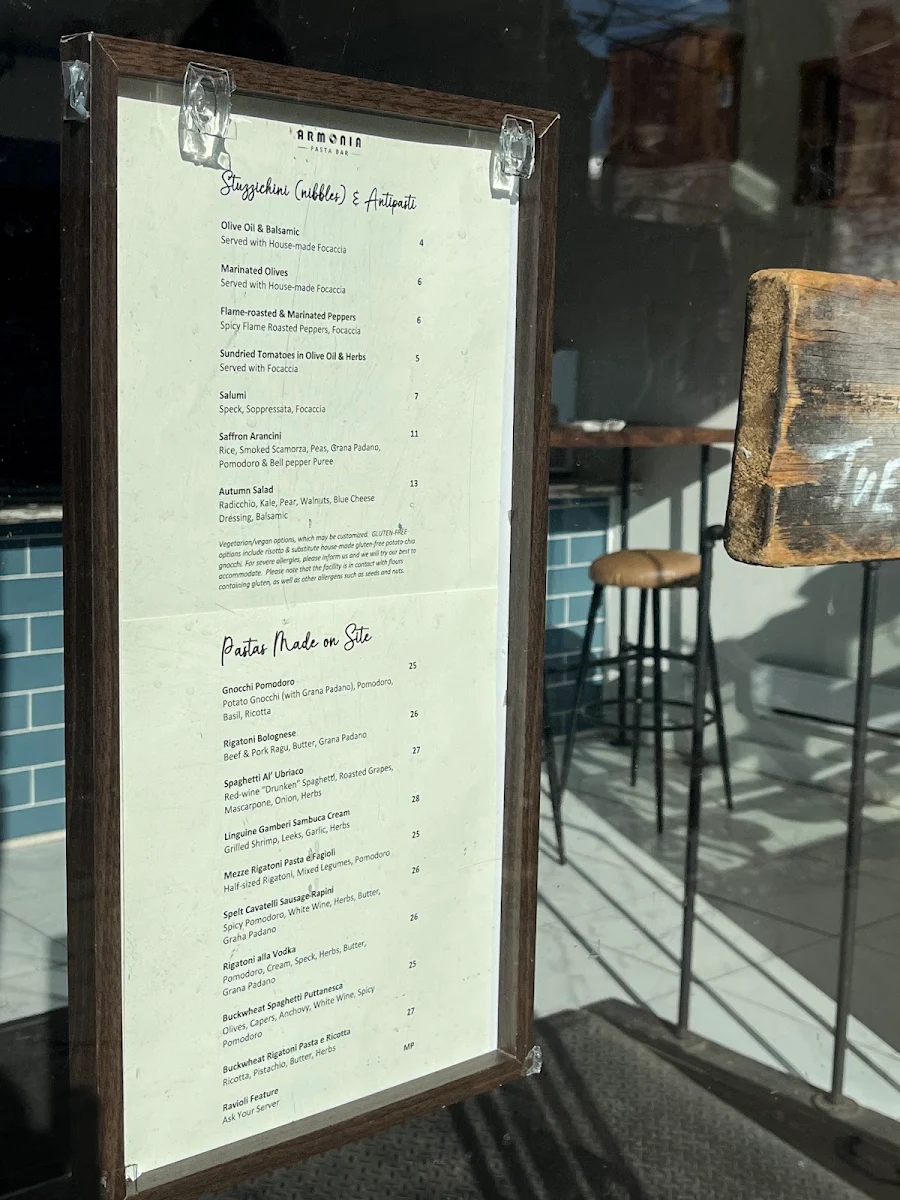 ARMONIA
PASTA BAR
Stuzzichini (nibbles) & Antipasti
Olive Oil & Balsamic
Served with House-made Focaccia 4
Marinated Olives
Served with House-made Focaccia 6
Flame-roasted & Marinated Peppers
Spicy Flame Roasted Peppers, Focaccia 6
Sundried Tomatoes in Olive Oil & Herbs 5
Served with Focaccia
Salumi 7
Speck, Soppressata, Focaccia
Saffron Arancini 11
Rice, Smoked Scamorza, Peas, Grana Padano,
Pomodoro & Bell pepper Puree
Autumn Salad 13
Radicchio, Kale, Pear, Walnuts, Blue Cheese
Dressing, Balsamic
Vegetarian/vegan options, which may be customized. GLUTEN-FREE
options include risotto & substitute house-made gluten-free potato-chia
gnocchi. For severe allergies, please inform us and we will try our best to
accommodate. Please note that the facility is in contact with flours
containing gluten, as well as other allergens such as seeds and nuts.
Pastas Made on Site
Gnocchi Pomodoro 25
Potato Gnocchi (with Grana Padano), Pomodoro,
Basil, Ricotta
Rigatoni Bolognese 26
Beef & Pork Ragu, Butter, Grana Padano
Spaghetti Al' Ubriaco 27
Red-wine "Drunken" Spaghetti, Roasted Grapes,
Mascarpone, Onion, Herbs
Linguine Gamberi Sambuca Cream 28
Grilled Shrimp, Leeks, Garlic, Herbs
Mezze Rigatoni Pasta e Fagioli 25
Half-sized Rigatoni, Mixed Legumes, Pomodoro
Spelt Cavatelli Sausage Rapini 26
Spicy Pomodoro, White Wine, Herbs, Butter,
Grana Padano
Rigatoni alla Vodka 26
Pomodoro, Cream, Speck, Herbs, Butter,
Grana Padano
Buckwheat Spaghetti Puttanesca 25
Olives, Capers, Anchovy, White Wine, Spicy
Pomodoro
Buckwheat Rigatoni Pasta e Ricotta 27
Ricotta, Pistachio, Butter, Herbs
Ravioli Feature MP
Ask Your Server
TUE